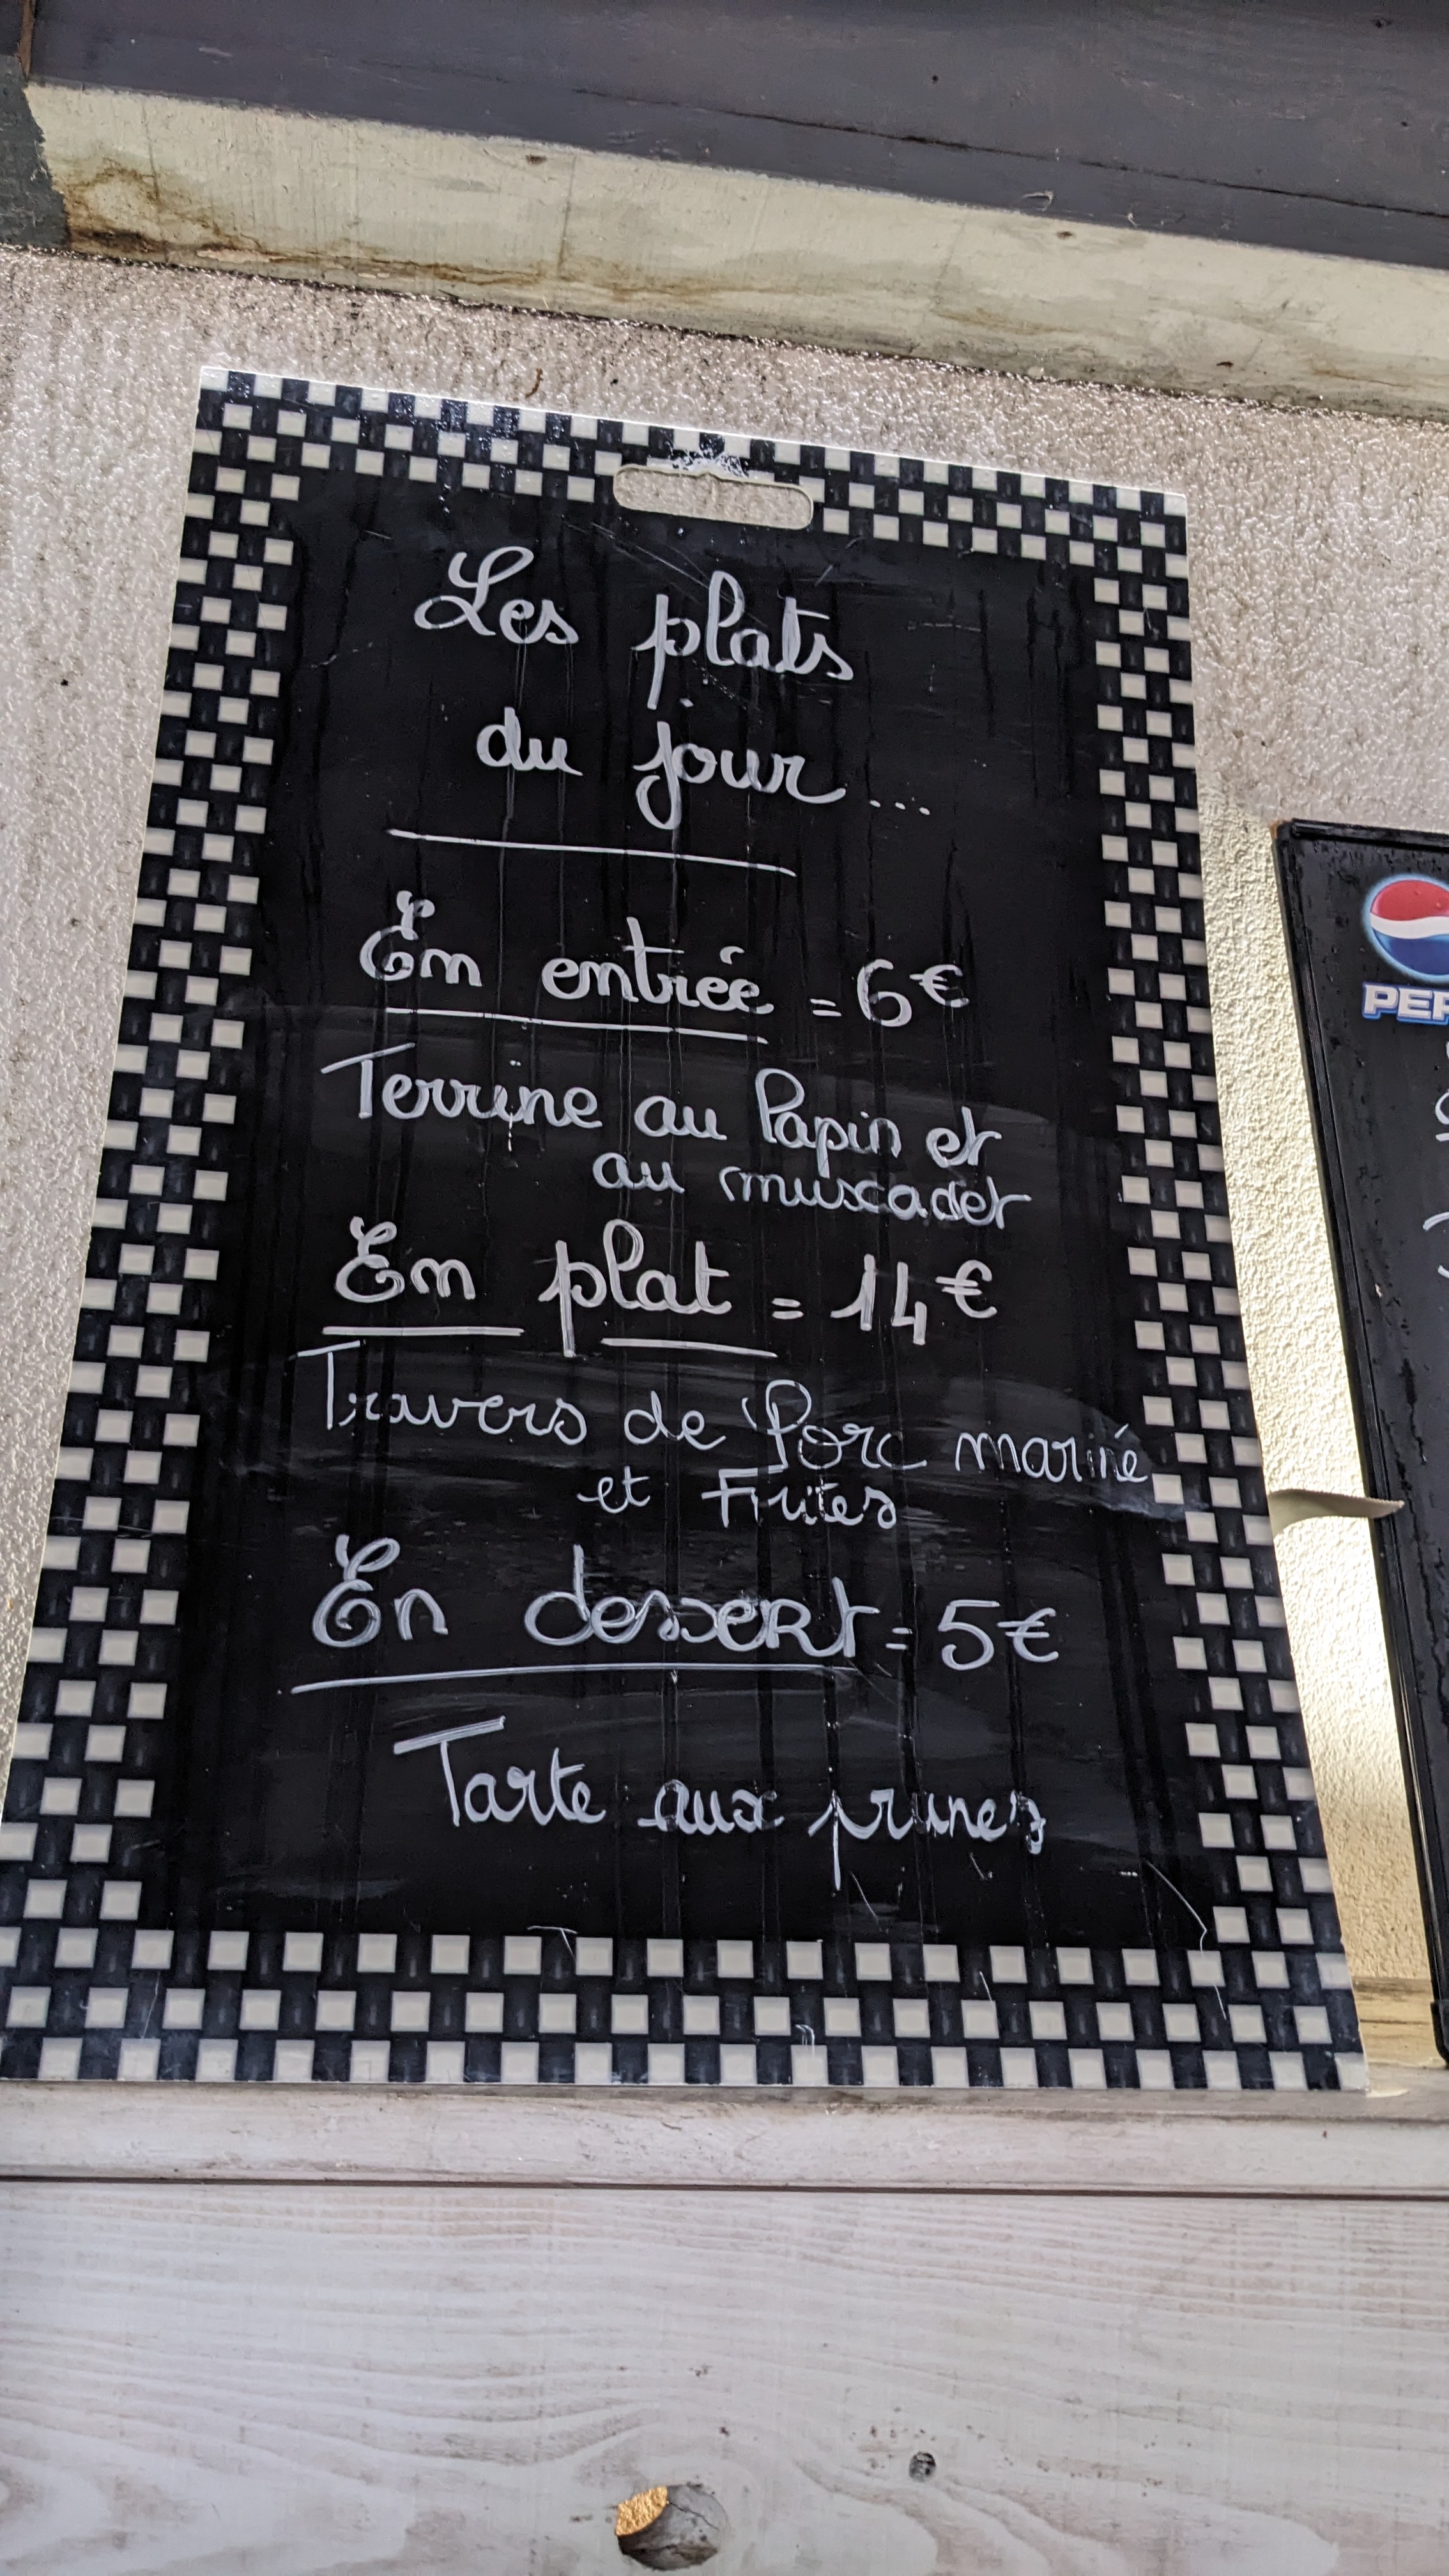 Les plats
du jour...
En entrée = 6€
Terrine au Lapin et
au muscadet
En plat = 14€
Travers de Porc mariné
et Frites
En dessert = 5€
Tarte aux prunes
PEP